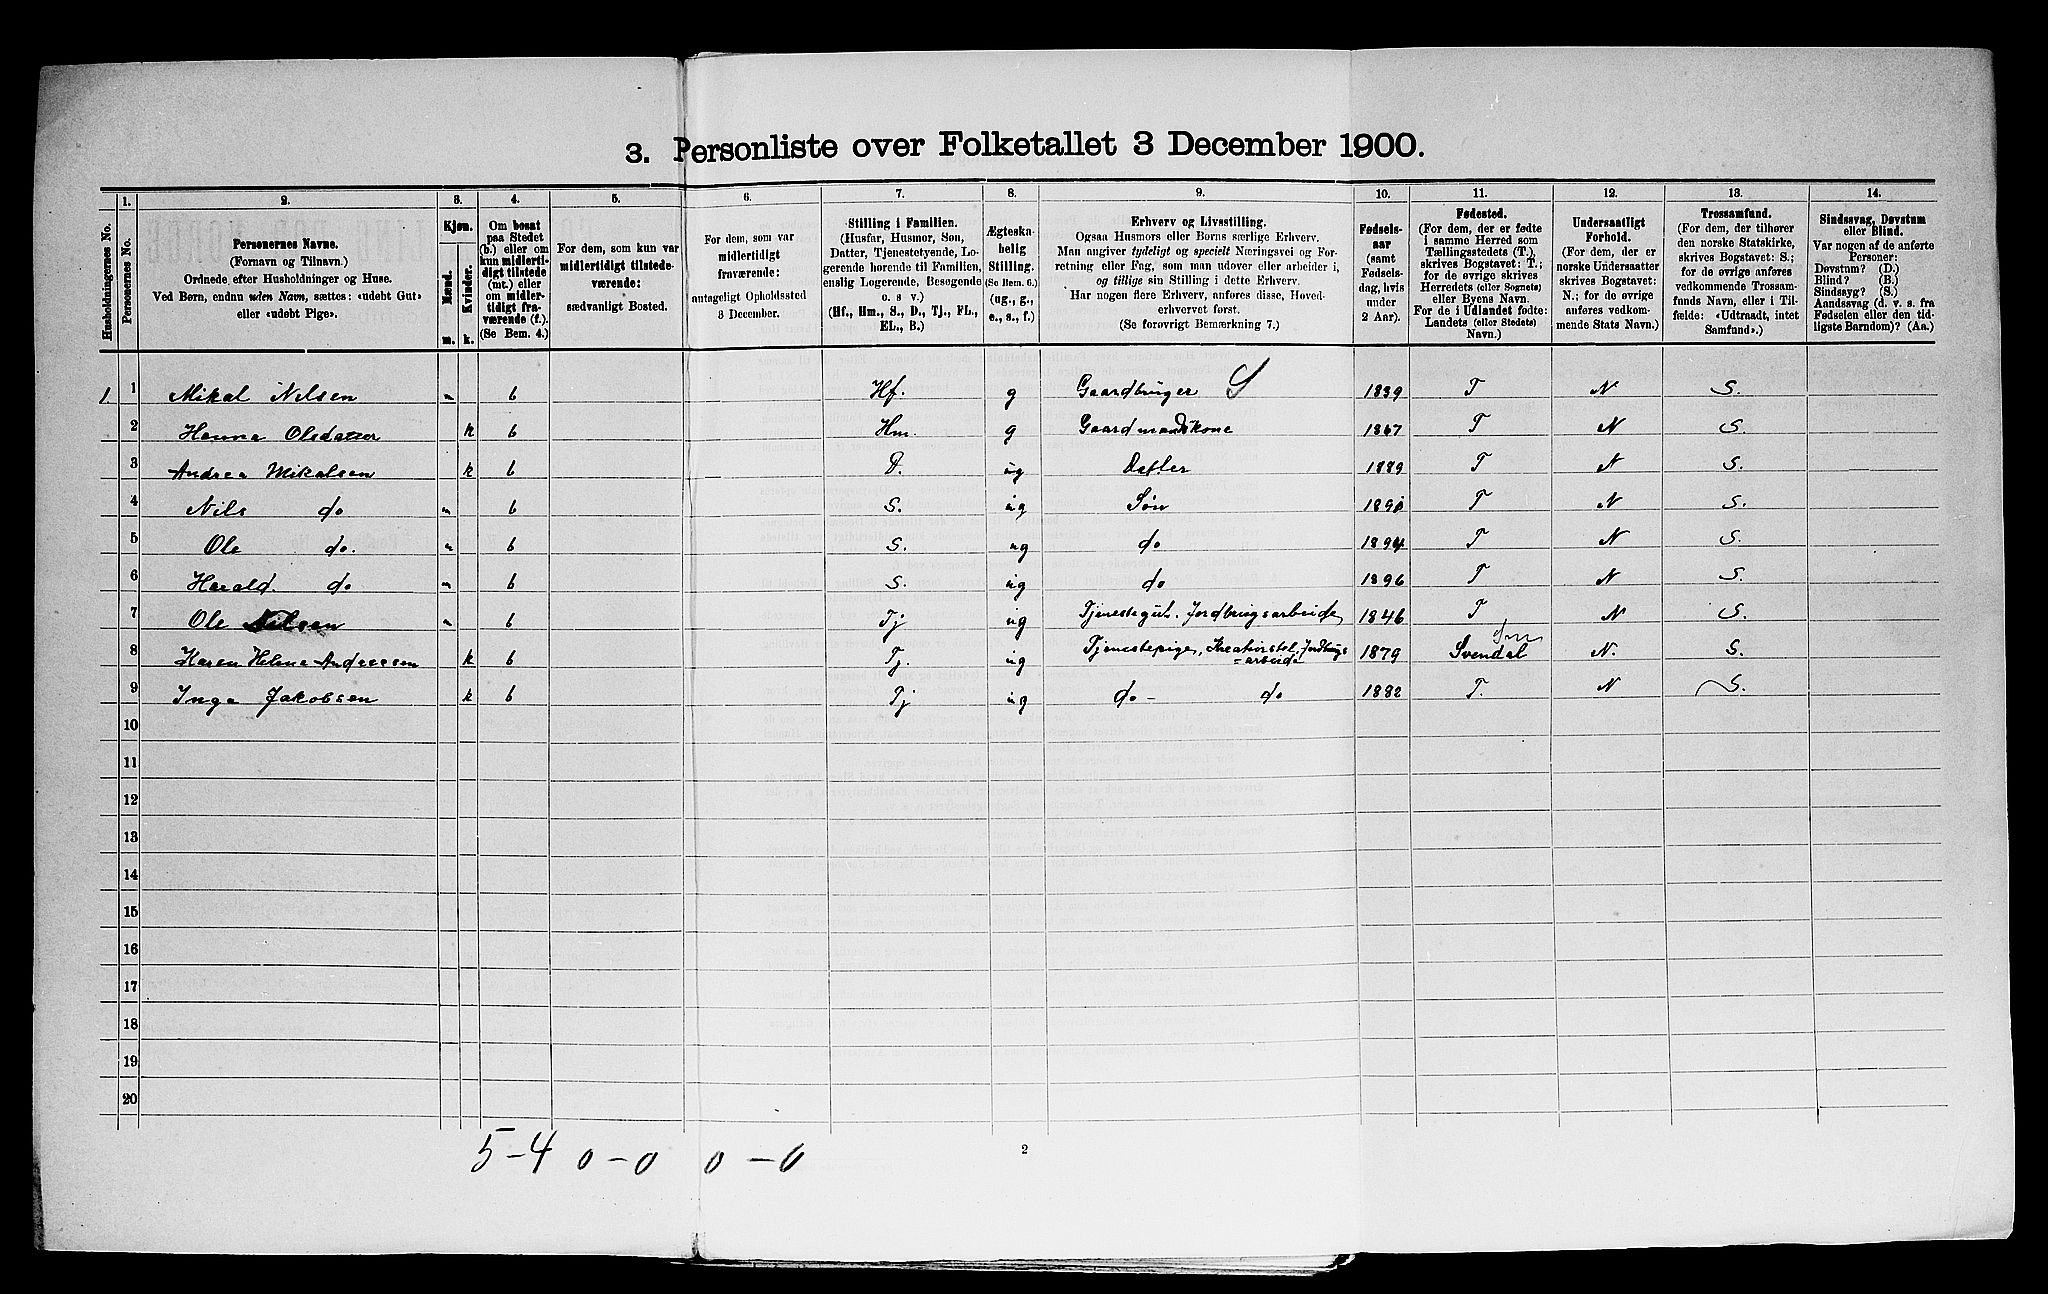 3. Personliste over Folketallet 3 December 1900.
Husholdningernes No.
1.
Personernes No.
2.
Personernes Navne.
(Fornavn og Tilnavn.)
Ordnede efter Husholdninger og Huse.
Ved Børn, endnu uden Navn, sættes: «udøbt Gut»
eller «udøbt Pige».
3.
Kjøn.
Mænd. Kvinder.
m. k.
4.
Om bosat
paa Stedet
(b.) eller om
kun midlerti-
digt tilstede
(mt.) eller
om midler-
tidigt fra-
værende (f.).
(Se Bem. 4.)
5.
For dem, som kun var
midlertidigt tilstede-
værende:
sædvanligt Bosted.
6.
For dem, som var
midlertidigt
fraværende:
antageligt Opholdssted
3 December.
7.
Stilling i Familien.
(Husfar, Husmor, Søn,
Datter, Tjenestetyende, Lo-
gerende hørende til Familien,
enslig Logerende, Besøgende
o. s v.)
(Hf., Hm., S., D., Tj., FL.,
EL., B.)
8.
Ægteska-
belig
Stilling.
(Se Bem. 6.)
(ug., g.,
e., s., f.)
9.
Erhverv og Livsstilling.
Ogsaa Husmors eller Børns særlige Erhverv.
Man angiver tydeligt og specielt Næringsvei og For-
retning eller Fag, som man udøver eller arbeider i,
og tillige sin Stilling i dette Erhverv.
Har nogen flere Erhverv, anføres disse, Hoved-
erhvervet først.
(Se forøvrigt Bemærkning 7.)
10.
Fødsels-
aar
(samt
Fødsels-
dag, hvis
under
2 Aar).
11.
Fødested.
(For dem, der er fødte
i samme Herred som
Tællingsstedets (T.),
skrives Bogstavet: T.;
for de øvrige skrives
Herredets (eller Sognets)
eller Byens Navn.
For de i Udlandet fødte:
Landets (eller Stedets)
Navn.)
12.
Undersaatligt
Forhold.
(For dem, der er
norske Undersaatter
skrives Bogstavet:
N.; for de øvrige
anføres vedkom-
mende Stats Navn.)
13.
Trossamfund.
(For dem, der tilhører
den norske Statskirke,
skrives Bogstavet: S.;
for de øvrige anføres
vedkommende Trossam-
funds Navn, eller i Til-
fælde: «Udtraadt, intet
Samfund».)
14.
Sindssvag, Døvstum
eller Blind.
Var nogen af de anførte
Personer:
Døvstum? (D.)
Blind? (B.)
Sindssyg? (S.)
Aandssvag (d. v. s. fra
Fødselen eller den tid-
ligste Barndom)? (Aa.)
1. 1 Mikal Nilsen m b Hf. g Gaardbruger S 1839 T N S.
2 Hanna Olsdatter k b Hm. g Gaardmandskone 1867 T N S.
3 Andrea Mikalsen k b D. ug Datter 1889 T N S.
4 Nils do m b S. ug Søn 1891 T N S.
5 Ole do. m b S. ug do 1894 T N S.
6 Harald. do m b S. ug do 1896 T N S.
7 Ole Nilsen m b Tj ug Tjenestegut. Jordbrugsarbeide 1846 T N S.
8 Karen Helene Andreesen k b Tj. ug Tjenestepige, Kreaturstel, Jordbrugs 1879 Svendal N. S.
=arbeide
9 Inga Jakobsen k b Tj ug do - do 1882 T. N S.
10
11
12
13
14
15
16
17
18
19
20
5-4 0-0 0-0
2